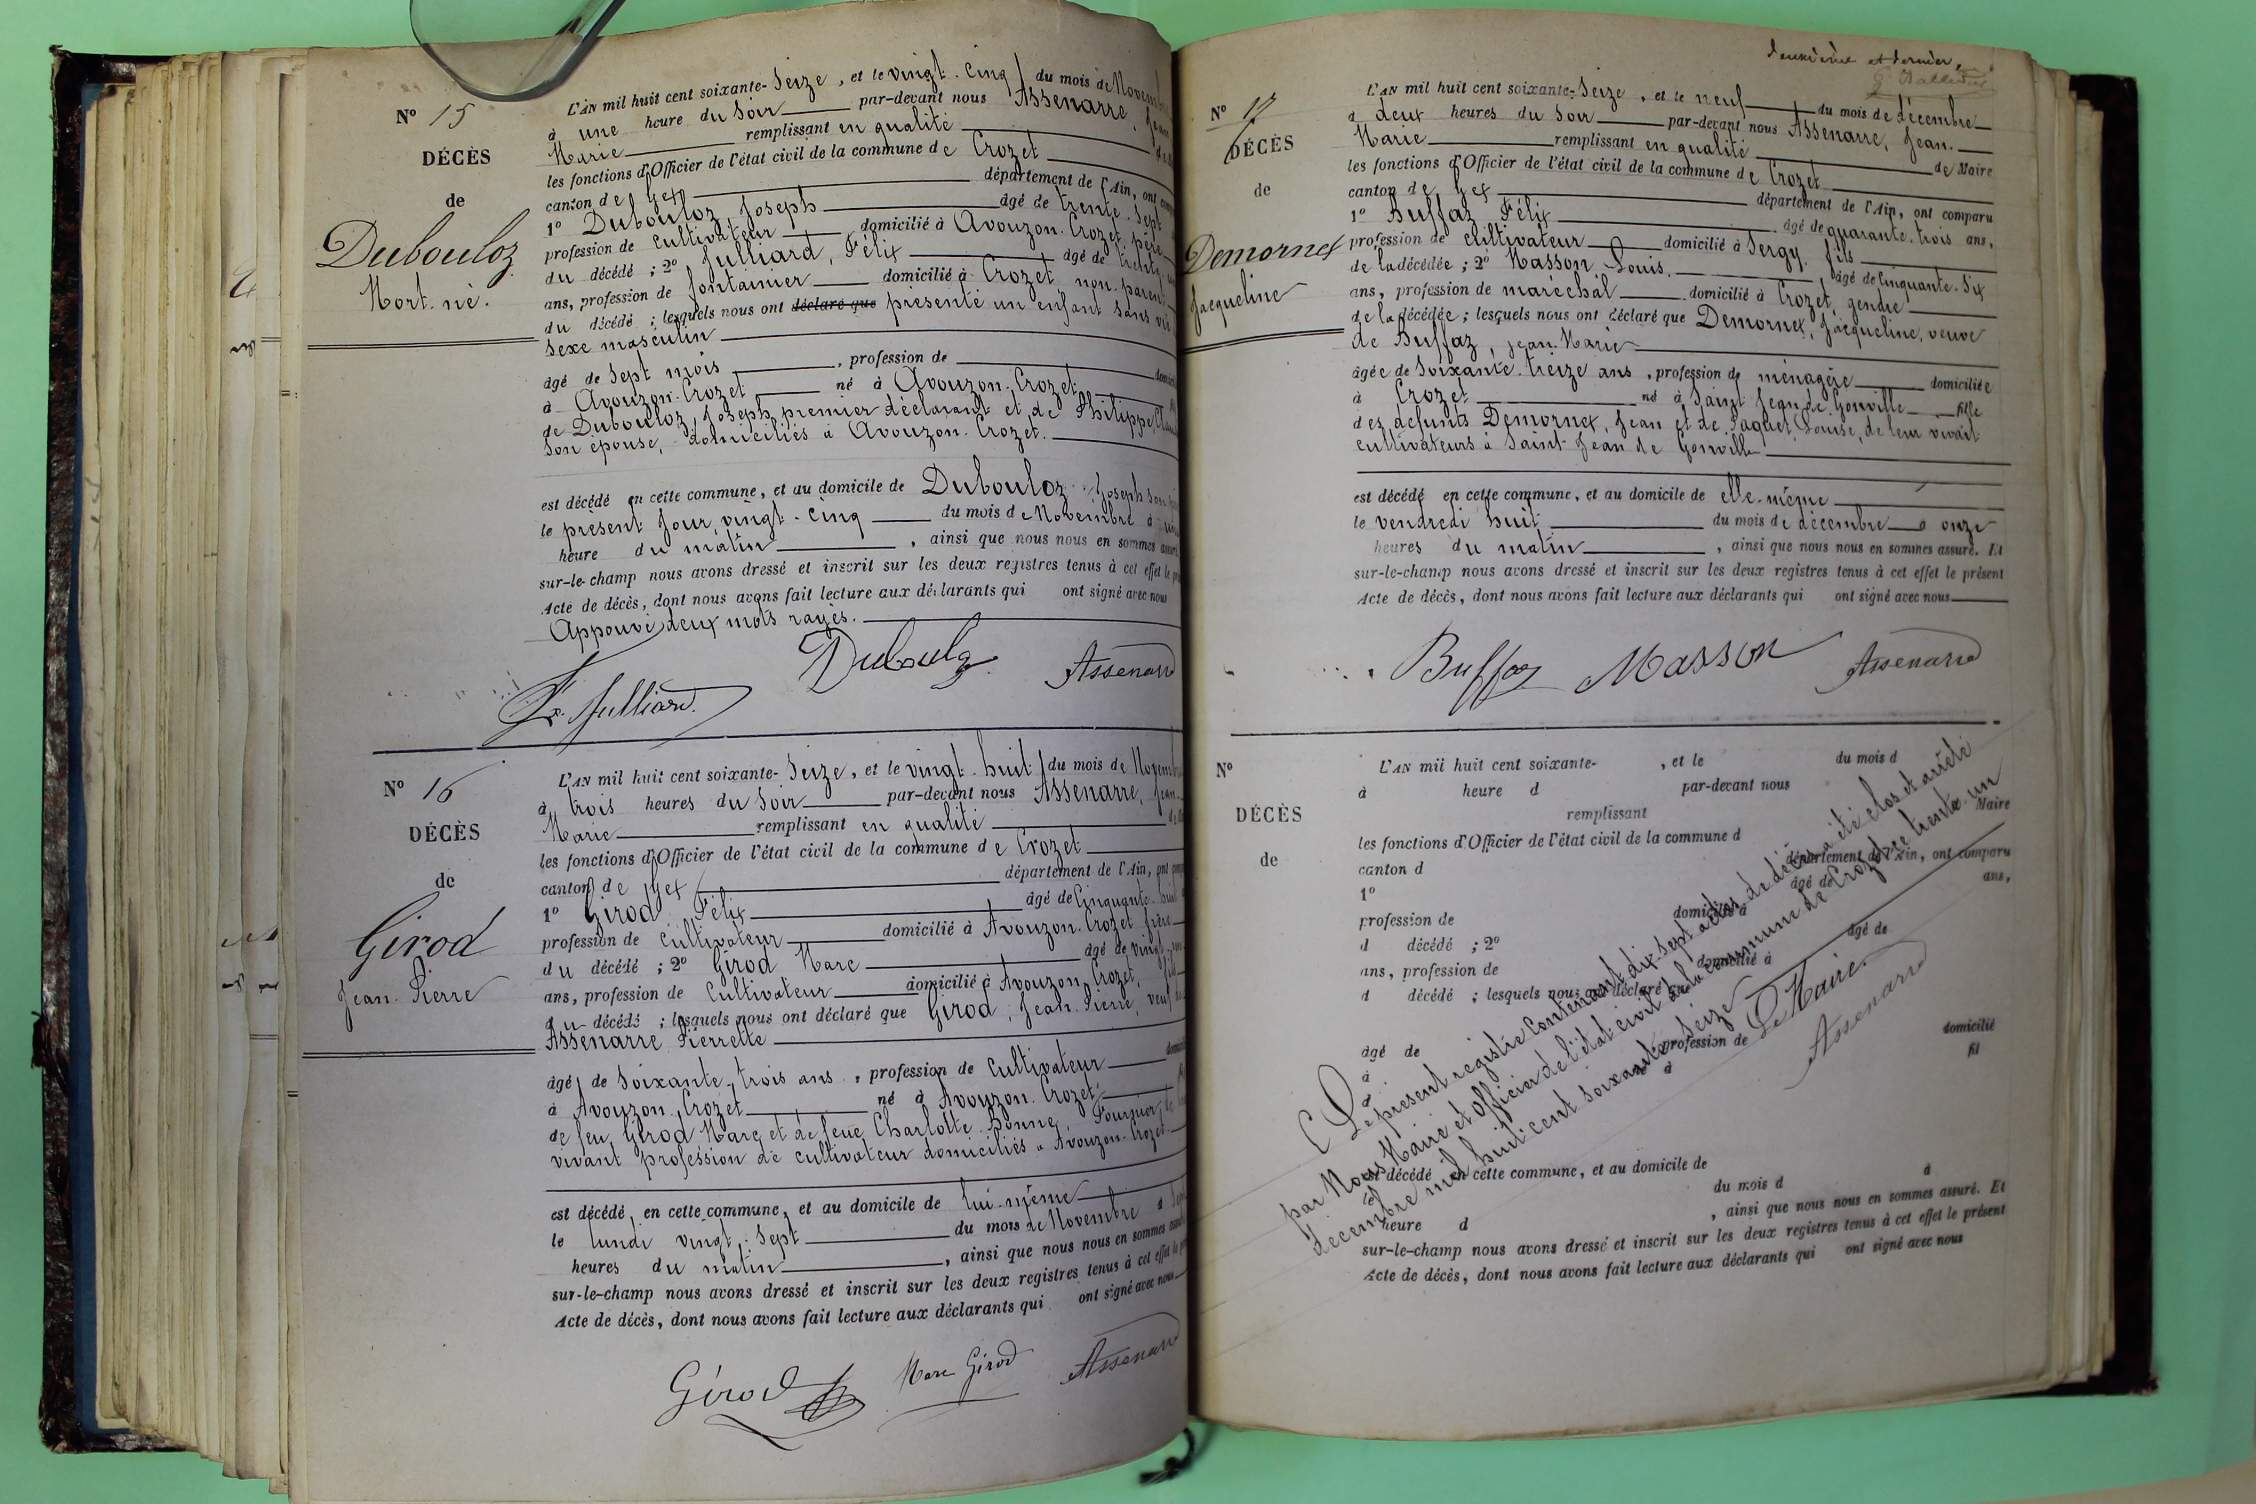 N° 15
DÉCÈS
de
Dubouloz
Mort-né.
L'AN mil huit cent soixante-Seize, et le vingt-cinq du mois de Novembre
à une heure du Soir par-devant nous Assenarre, Jean
Marie remplissant en qualité
les fonctions d'Officier de l'état civil de la commune de Crozet
canton de Gex département de l'Ain, ont
1° Dubouloz, Joseph âgé de trente-sept
profession de cultivateur domicilié à Avouzon-Crozet, père
du décédé ; 2° Julliard, Félix âgé de trente
ans, profession de fontainier domicilié à Crozet non-parent
du décédé ; lesquels nous ont déclaré que présenté un enfant sans vie
Sexe masculin
âgé de Sept mois, profession de
à Avouzon-Crozet né à Avouzon-Crozet
de Dubouloz, Joseph, premier déclarant et de Philippe,
Son épouse, domiciliés à Avouzon-Crozet.
est décédé en cette commune, et au domicile de Dubouloz Joseph son
le présent jour, vingt-cinq du mois de Novembre à
heure du matin, ainsi que nous nous en sommes
sur-le-champ nous avons dressé et inscrit sur les deux registres tenus à cet effet le
Acte de décès, dont nous avons fait lecture aux déclarants qui ont signé avec nous
Appouvé deux mots rayés.
Fx. Julliard. Dubouloz Assenarre
N° 16
DÉCÈS
de
Girod
Jean-Pierre
L'AN mil huit cent soixante-Seize, et le vingt-huit du mois de Novembre
à trois heures du Soir par-devant nous Assenarre, Jean-
Marie remplissant en qualité
les fonctions d'Officier de l'état civil de la commune de Crozet
canton de Gex département de l'Ain, ont
1° Girod Félix âgé de Cinquante-huit
profession de Cultivateur domicilié à Avouzon-Crozet frère
du décédé ; 2° Girod Marc âgé de vingt
ans, profession de Cultivateur domicilié à Avouzon-Crozet, fils
du décédé ; lesquels nous ont déclaré que Girod, Jean-Pierre, veuf de
Assenarre Pierrette
âgé de Soixante-trois ans, profession de Cultivateur
à Avouzon-Crozet né à Avouzon-Crozet,
de feu Girod Marc et de feue Charlotte-Bonne, Fournier, de
vivant profession de cultivateur domiciliés à Avouzon-Crozet.
est décédé en cette commune, et au domicile de lui-même
le lundi vingt-sept du mois de Novembre à Sept
heures du matin, ainsi que nous nous en sommes
sur-le-champ nous avons dressé et inscrit sur les deux registres tenus à cet effet le
Acte de décès, dont nous avons fait lecture aux déclarants qui ont signé avec nous
Girod Marc Girod Assenarre
deuxième et dernier,
N° 17
DÉCÈS
de
Demornex
Jacqueline
L'AN mil huit cent soixante-Seize, et le neuf du mois de décembre
à deux heures du Soir par-devant nous Assenarre, Jean-
Marie remplissant en qualité de Maire
les fonctions d'Officier de l'état civil de la commune de Crozet
canton de Gex département de l'Ain, ont comparu
1° Buffaz Félix âgé de quarante-trois ans,
profession de cultivateur domicilié à Sergy, fils
de la décédée ; 2° Masson Louis, âgé de Cinquante-Six
ans, profession de maréchal domicilié à Crozet, gendre
de la décédée ; lesquels nous ont déclaré que Demornex, Jacqueline, veuve
de Buffaz, Jean-Marie
âgée de Soixante-treize ans, profession de ménagère domiciliée
à Crozet né à Saint Jean de Gonville fille
des défunts Demornex, Jean et de Paquet, Louise, de leur vivant
cultivateurs à Saint-Jean de Gonville
est décédé en cette commune, et au domicile de elle-même
le vendredi huit du mois de décembre à onze
heures du matin, ainsi que nous nous en sommes assuré. Et
sur-le-champ nous avons dressé et inscrit sur les deux registres tenus à cet effet le présent
Acte de décès, dont nous avons fait lecture aux déclarants qui ont signé avec nous
Buffaz Masson Assenarre
N°
DÉCÈS
de
L'AN mil huit cent soixante- , et le du mois d
à heure d par-devant nous
remplissant Maire
les fonctions d'Officier de l'état civil de la commune d
canton d département de l'Ain, ont comparu
1° âgé de ans,
profession de domicilié à
d décédé ; 2° âgé de
ans, profession de domicilié à
d décédé ; lesquels nous ont déclaré que
âgé de profession de domicilié
à né à fil
d
est décédé en cette commune, et au domicile de
le du mois d à
heure d , ainsi que nous nous en sommes assuré. Et
sur-le-champ nous avons dressé et inscrit sur les deux registres tenus à cet effet le présent
Acte de décès, dont nous avons fait lecture aux déclarants qui ont signé avec nous
Le présent registre Contenant dix-sept actes de décès a été clos et arrêté
par Nous Maire et officier de l'état-civil de la commune de Crozet, le trente-un
décembre mil huit cent soixante-Seize
Le Maire
Assenarre